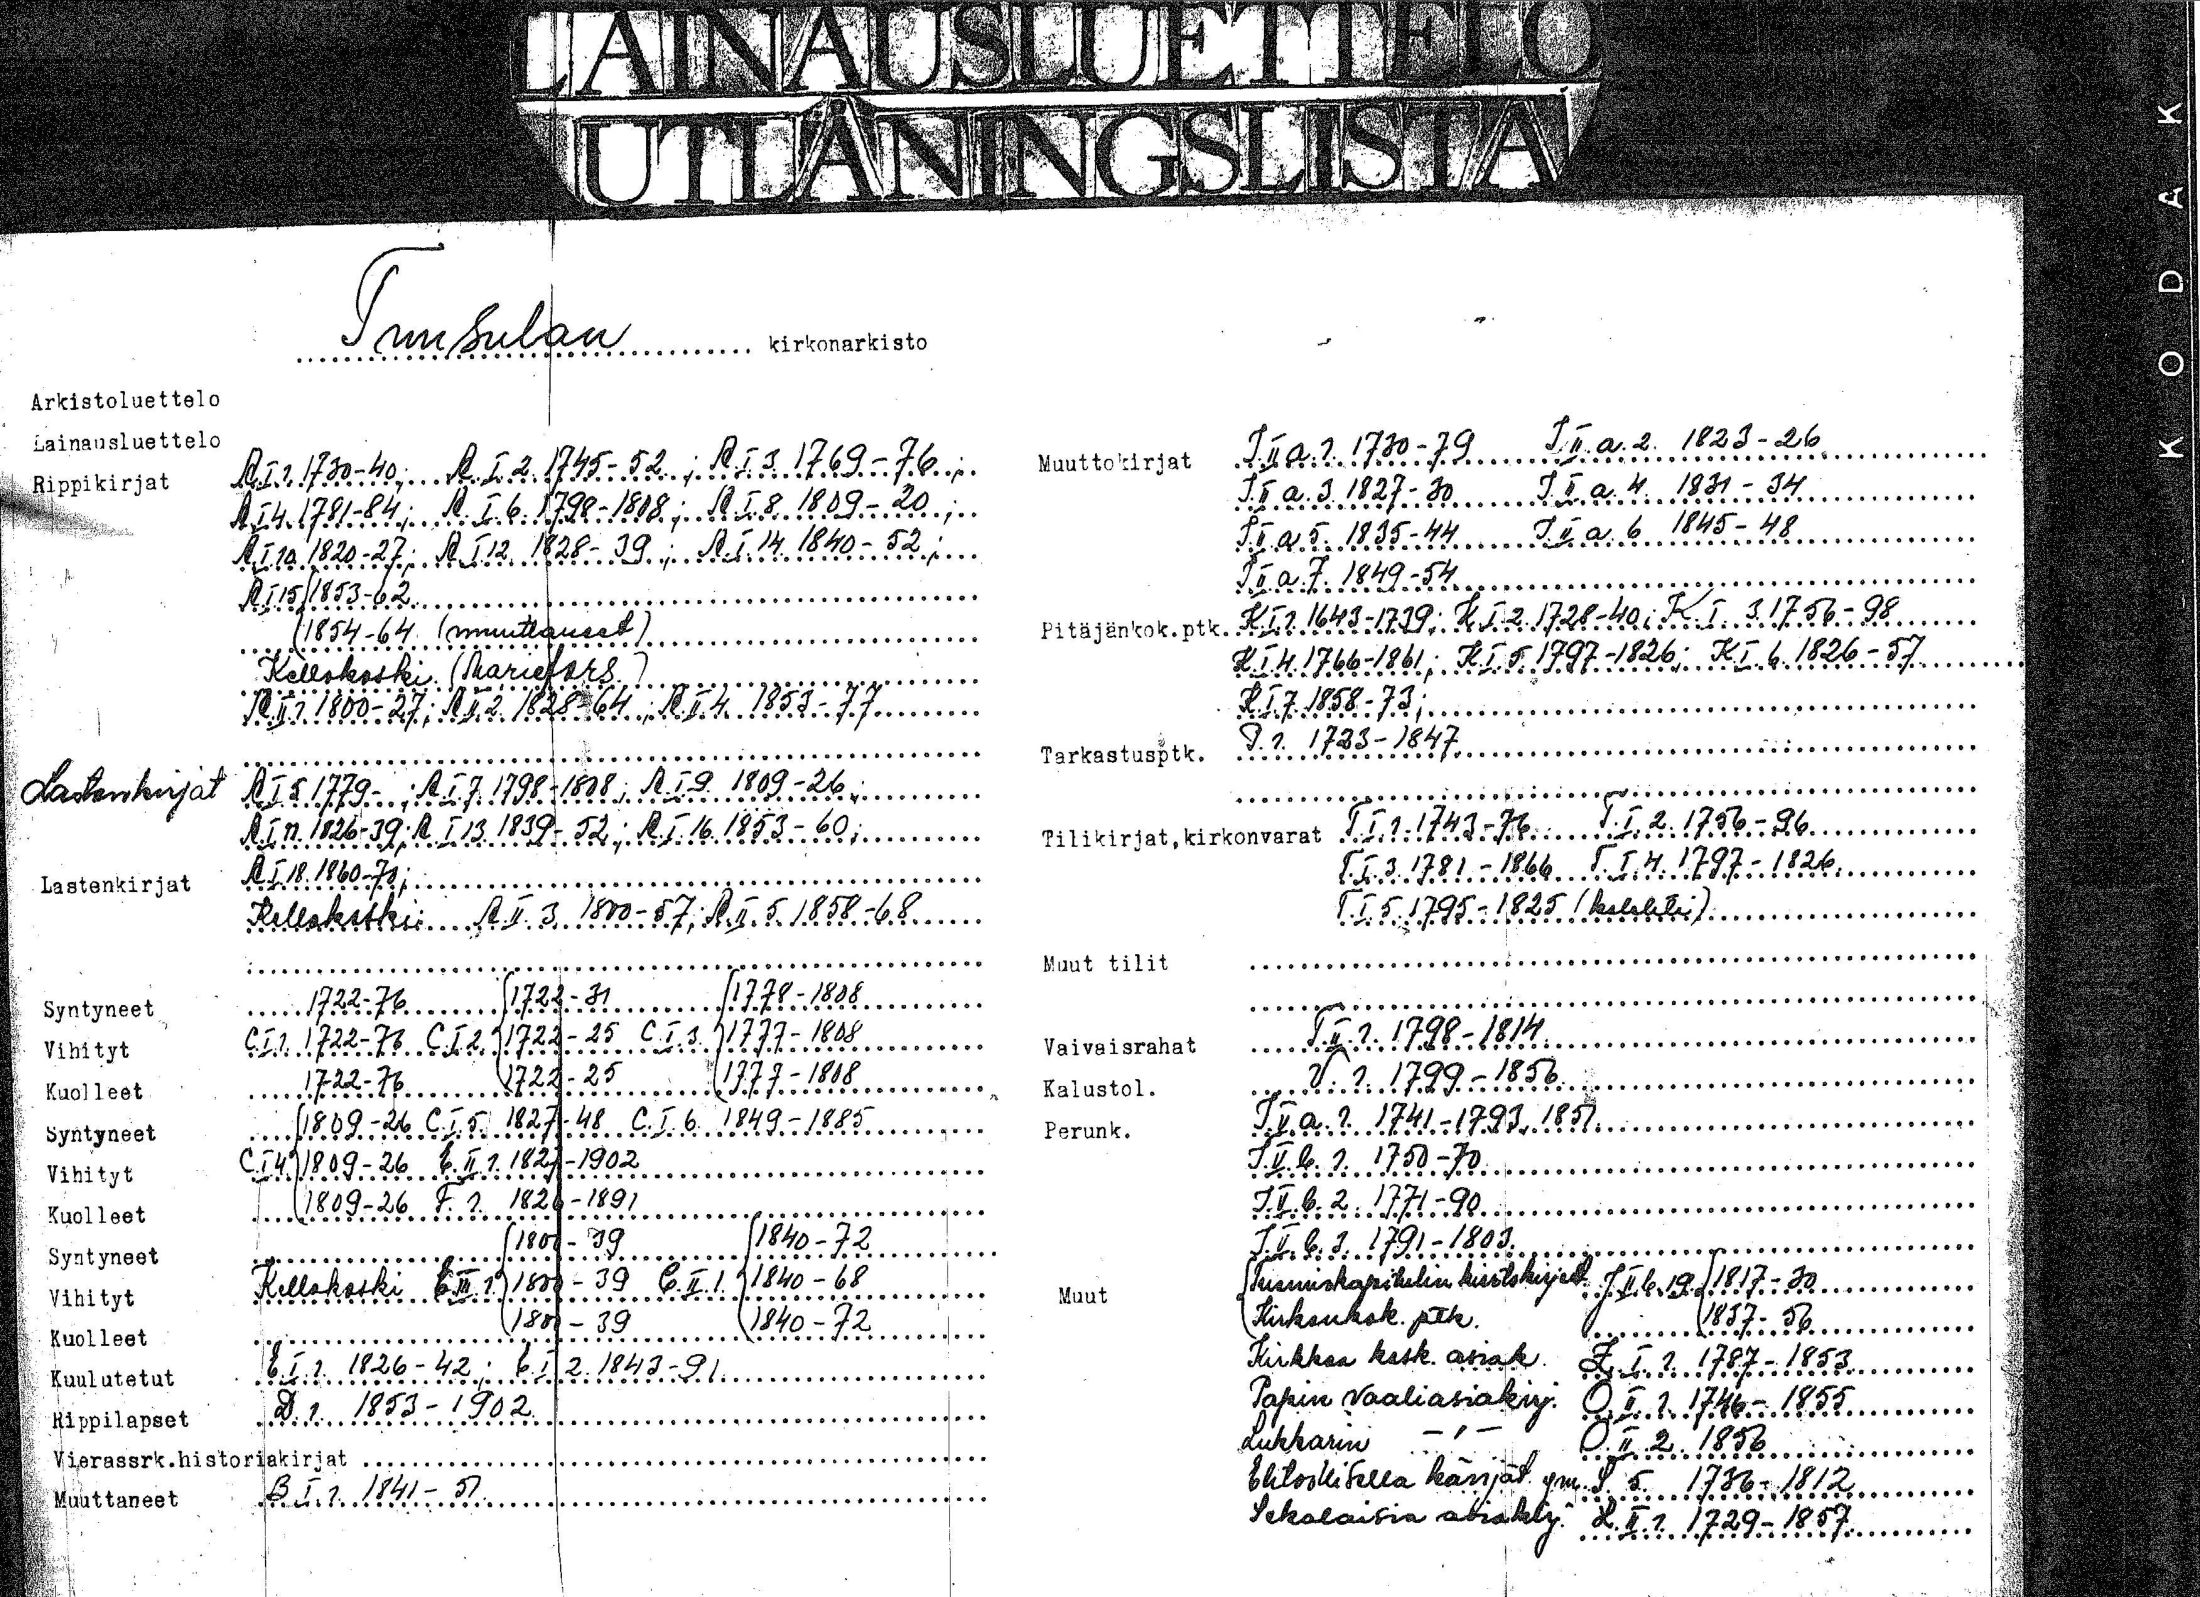 LAINAUSLUETTELO
UTLÅNINGSLISTA
KODAK
Tuusulan kirkonarkisto
Arkistoluettelo
Lainausluettelo
Rippikirjat A.I.1. 1730-40; A.I.2. 1745-52; A.I.3. 1769-76;
A.I.4. 1781-84; A.I.6. 1798-1808; A.I.8. 1809-20;
A.I.10. 1820-27; A.I.12. 1828-39; A.I.14. 1840-52;
A.I.15. 1853-62
1854-64 (muuttaneet)
Kellokoski (Mariefors)
A.II.1. 1800-27; A.II.2. 1828-64; A.II.4. 1853-77
Lastenkirjat A.I.5. 1779- ; A.I.7. 1798-1808; A.I.9. 1809-26;
A.I.11. 1826-39; A.I.13. 1839-52; A.I.16. 1853-60;
Lastenkirjat A.I.18. 1860-70;
Kellokoski: A.II.3. 1800-57; A.II.5. 1858-68
Syntyneet 1722-76 1722-31 1778-1808
Vihityt C.I.1. 1722-76 C.I.2. 1722-25 C.I.3. 1777-1808
Kuolleet 1722-76 1722-25 1777-1808
Syntyneet 1809-26 C.I.5. 1827-48 C.I.6. 1849-1885
Vihityt C.I.4. 1809-26 E.II.1. 1827-1902
Kuolleet 1809-26 F.1. 1826-1891
Syntyneet 1800-39 1840-72
Vihityt Kellokoski 1800-39 C.II.1. 1840-68
Kuolleet 1800-39 1840-72
Kuulutetut E.I.1. 1826-42; E.I.2. 1843-91
Rippilapset D.1. 1853-1902
Vierassrk.historiakirjat
Muuttaneet B.I.1. 1841-51
Muuttokirjat I.II.a.1. 1730-79 I.II.a.2. 1823-26
I.II.a.3. 1827-30 I.II.a.4. 1831-34
I.II.a.5. 1835-44 I.II.a.6. 1845-48
I.II.a.7. 1849-54
Pitäjänkok.ptk. K.I.1. 1643-1739; K.I.2. 1728-40; K.I.3. 1756-98
K.I.4. 1766-1861; K.I.5. 1797-1826; K.I.6. 1826-57
K.I.7. 1858-73;
Tarkastusptk. P.1. 1723-1847
Tilikirjat,kirkonvarat T.I.1. 1743-76 T.I.2. 1756-96
T.I.3. 1781-1866 T.I.4. 1797-1826
T.I.5. 1795-1825 (kolehti)
Muut tilit
Vaivaisrahat T.II.1. 1798-1814
Kalustol. V.1. 1799-1856
Perunk. I.V.a.1. 1741-1793, 1851
I.V.b.1. 1750-70
I.V.b.2. 1771-90
I.V.b.3. 1791-1803
Muut Tuomiokapitulin kiertokirjeet J.II.b.19. 1817-30
Kirkonkok. ptk. 1837-56
Kirkkoa kosk. asiak. Z.I.1. 1787-1853
Papin vaaliasiakirj. O.II.1. 1746-1855
Lukkarin -"- O.II.2. 1856
Ehtoollisella kävijät ym. S.5. 1786-1812
Sekalaisia asiakirj. L.II.1. 1729-1857